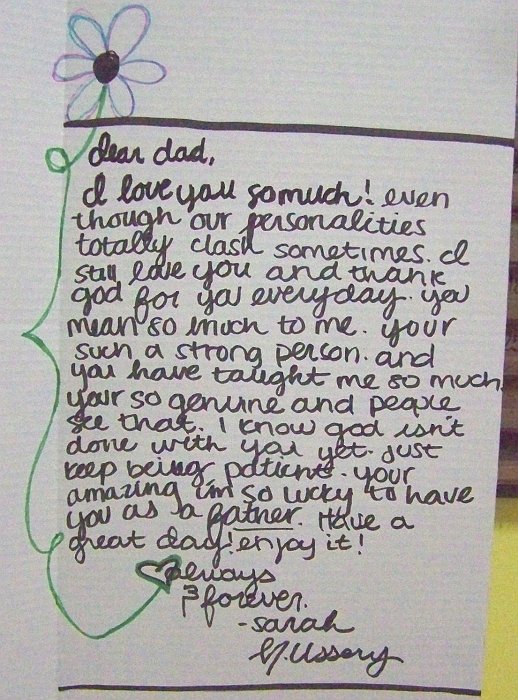 dear dad,
I love you so much! even
though our personalities
totally clash sometimes. I
still love you and thank
god for you everyday. you
mean so much to me. your
such a strong person. and
you have taught me so much.
your so genuine and people
see that. I know god isn't
done with you yet. just
keep being patient. your
amazing i'm so lucky to have
you as a father. Have a
great day! enjoy it!
always
& forever.
-sarah
Ussery